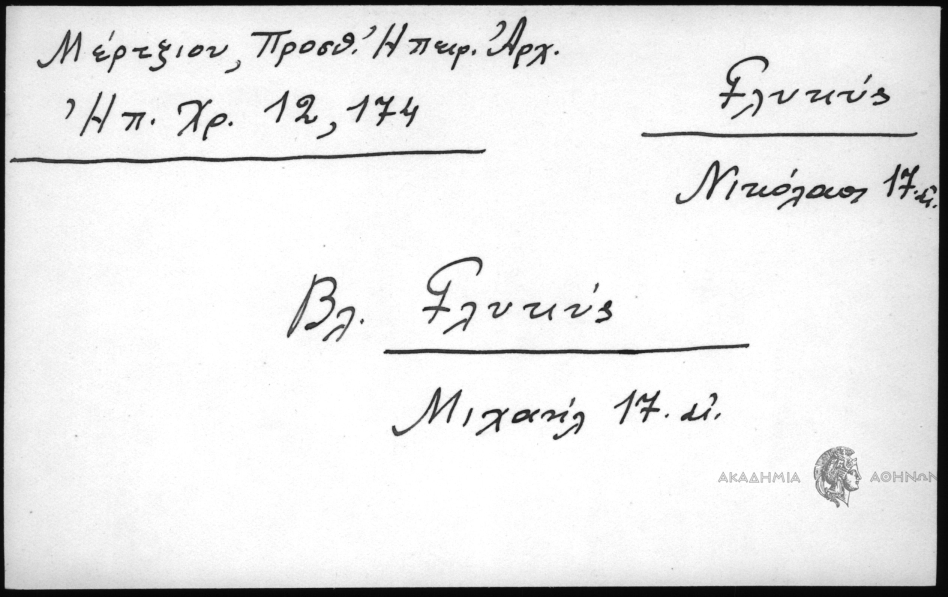 Μέρτζιου, Προσθ. Ἠπειρ. Ἀρχ.
Ἠπ. Χρ. 12, 174
Γλυκύς
Νικόλαος 17. αἰ.
Βλ. Γλυκύς
Μιχαήλ 17. αἰ.
ΑΚΑΔΗΜΙΑ ΑΘΗΝΩΝ